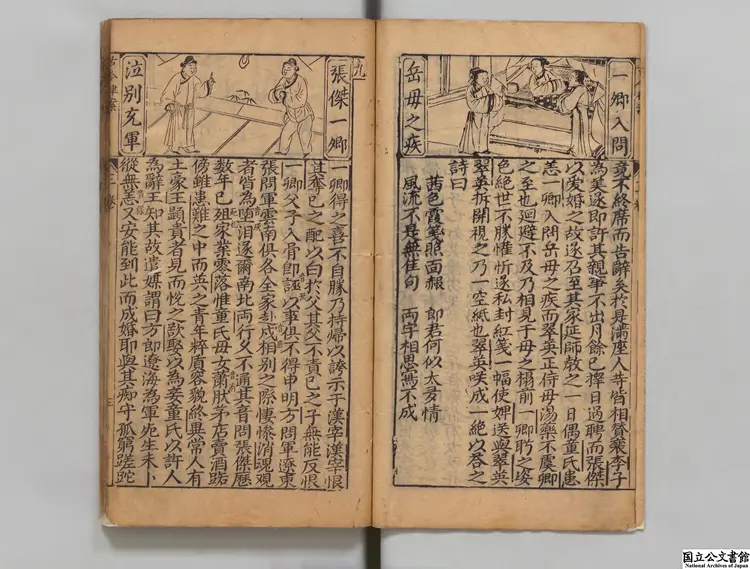 一卿入問
岳母之疾
竟不終席而告辭矣於是滿座人等皆相賛羨李子
為美遂即許其親事不出月餘已擇日過聘而張傑
以愛婚之故遂召至其家延師教之一日偶董氏患
恙一卿入問岳母之疾而翠英正侍母湯藥不虞卿
之至也迴避不及乃相見于母之榻前一卿盻之姿
色絕世不勝懽忻遂私封紅箋一幅使婢送與翠英
翠英拆開視之乃一空紙也翠英咲成一絕以答之
詩曰
茜色霞箋照面赧 郎君何似太多情
風流不是無佳句 兩字相思寫不成
九
張傑一卿
泣別充軍
一卿得之喜不自勝乃持帰以誇示于漢宰漢宰恨
其奪己之配以白於父其父不責己之子無能反恨
一卿父子入骨即誣以事俱不得申明方問軍遼東
張問軍雲南俱各全家赴戍相別之際悽慘消魂觀
者皆為墮泪遂爾南北兩行久不通其音問張傑歷
数年已殂家業零落惟董氏母女蕭肰茅店賣酒跕
傍雖患難之中而英之青年粹質容貌終與常人有
土豪王顯貴者見而悅之欲娶以為妾董氏以許人
為辭王知其故遣媒謂曰方郎遼海為軍死生未卜
縱無恙又安能到此而成婚耶與其痴守孤窮蹉跎
国立公文書館
National Archives of Japan